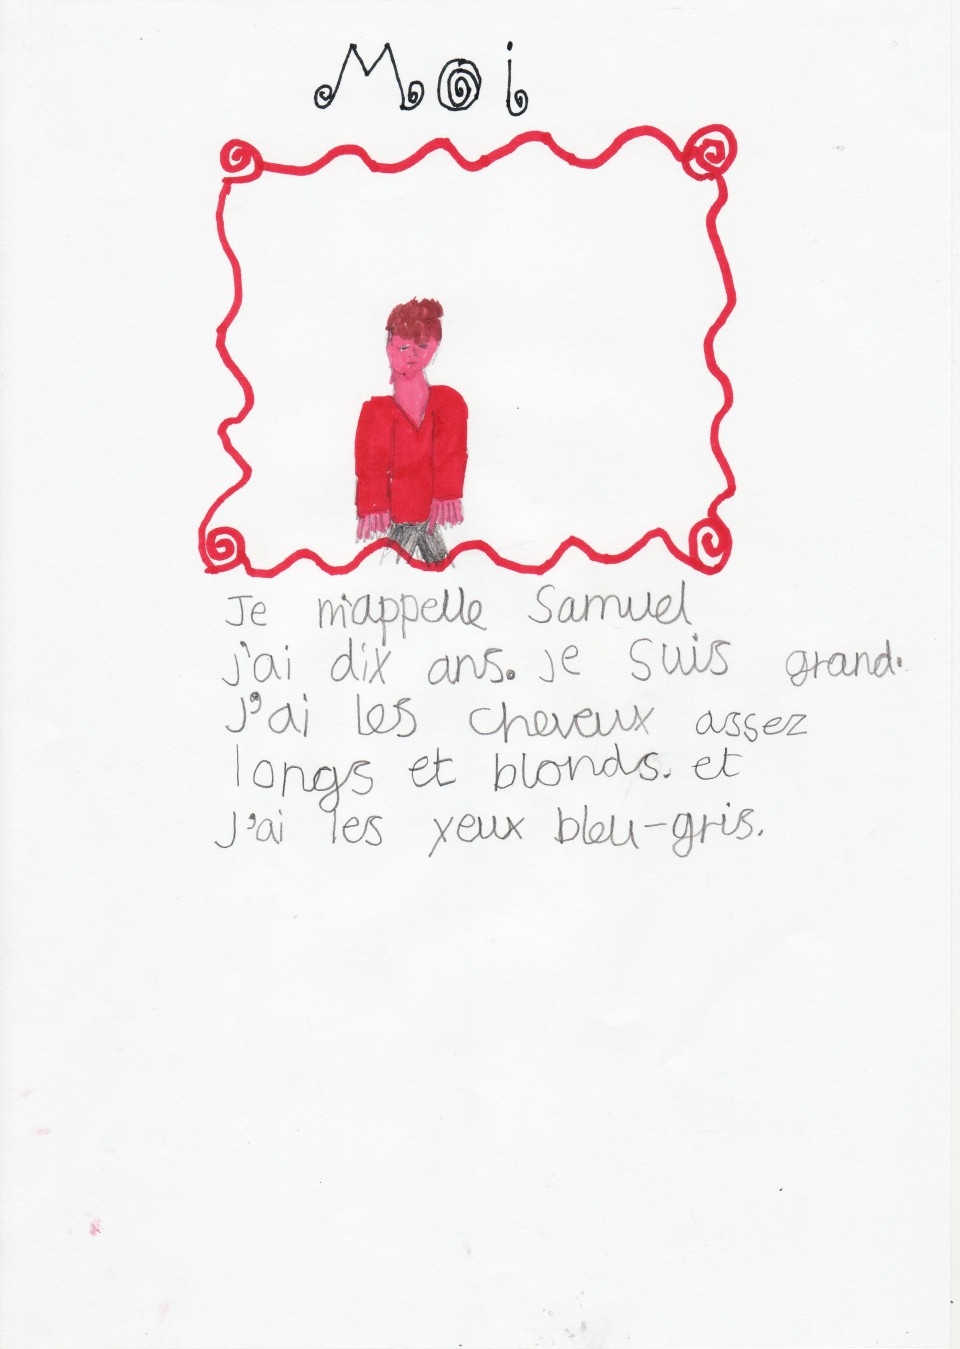 Moi
Je m'appelle Samuel
j'ai dix ans. je suis grand.
J'ai les cheveux assez
longs et blonds. et
j'ai les yeux bleu-gris.